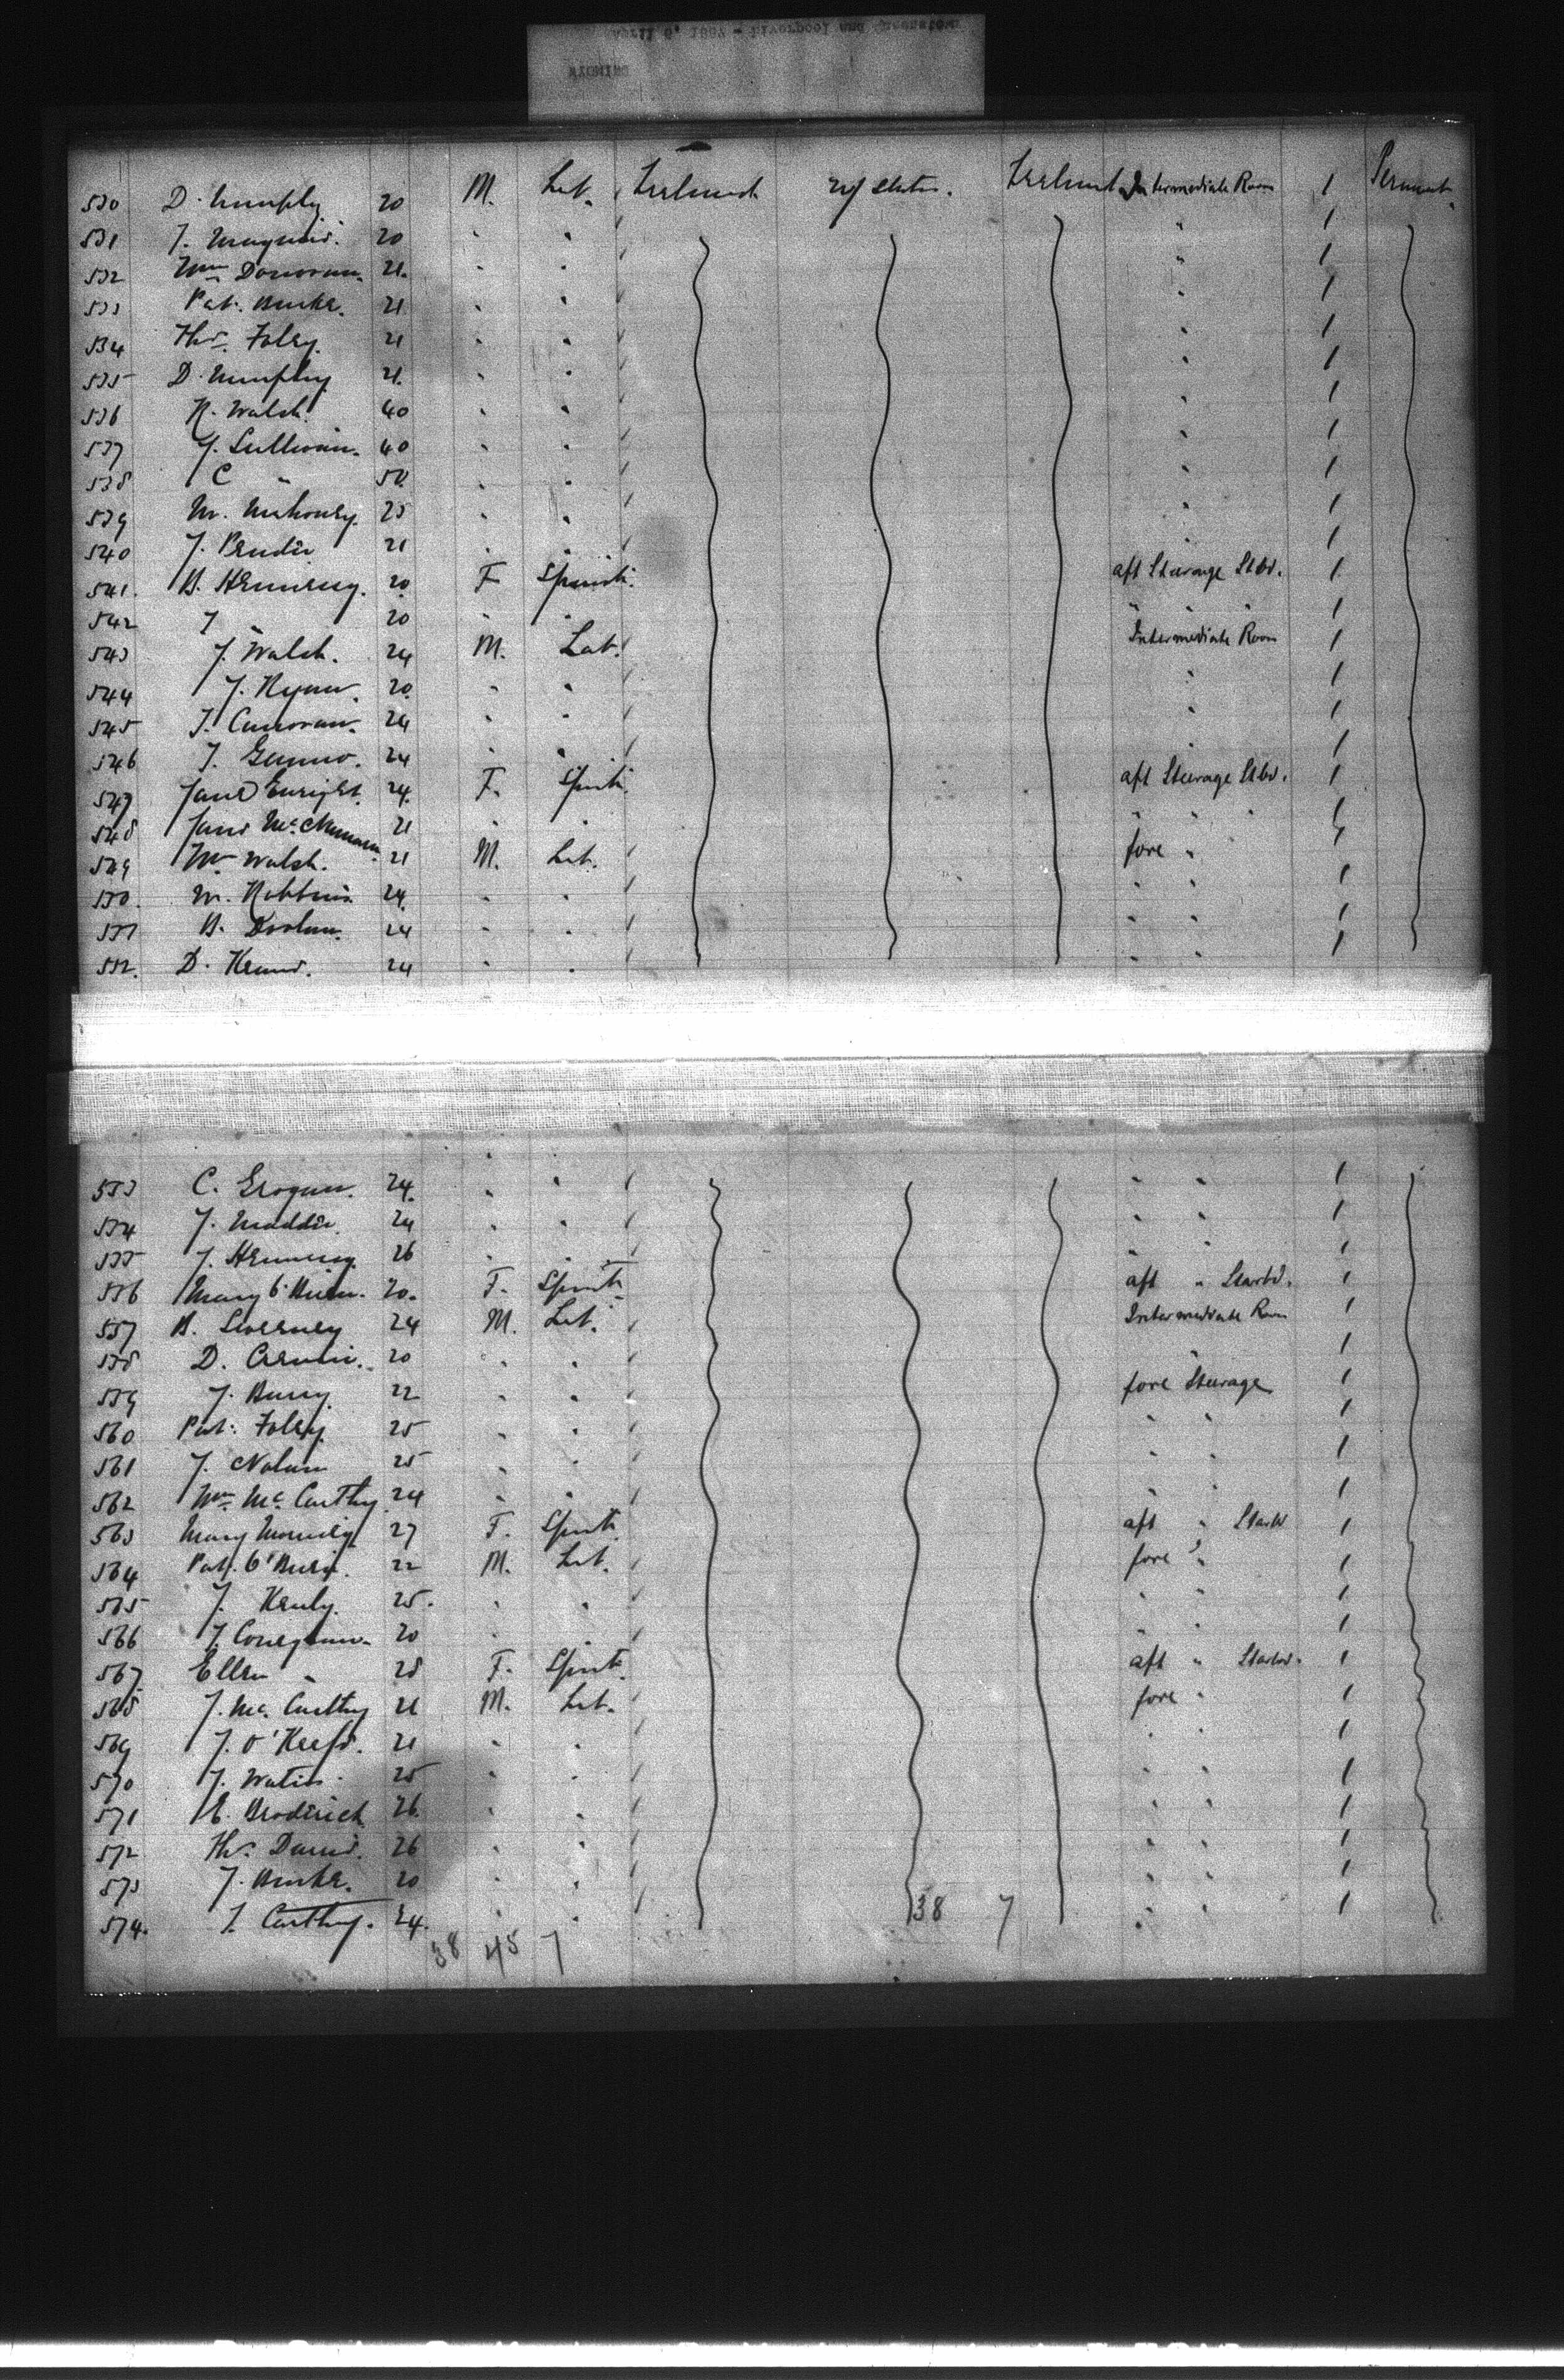 April 6, 1887 - Liverpool and Queenstown
530 D. Murphy 20 M. Lab. Ireland U/States. Ireland Intermediate Room 1
531 J. 20 " " " 1
532 Wm Donovan. 21. " " " 1
533 Pat. Burke. 21 " " " 1
534 Thos. Foley. 21 " " " 1
535 D. Murphy 21. " " " 1
536 R. Walsh. 40 " " " 1
537 J. Sullivan. 40 " " " 1
538 C " 50 " " " 1
539 M. Mahoney. 25 " " " 1
540 J. 21 " " " 1
541. B. Hennessy. 20 F Spinst. aft Steerage Stbd. 1
542 J " 20 " " " " " 1
543 J. Walsh. 24 M. Lab. Intermediate Room 1
544 J. Ryan. 20. " " " 1
545 J. 24 " " " 1
546 J. 24 " " " 1
547 Jane Enright. 24. F. Spinst. aft Steerage Stbd. 1
548 Jane 21 " " " " " 1
549 Wm Walsh. 21 M. Lab. fore " 1
550. M. Robbins 24. " " " " 1
551 B. Doolan. 24 " " " " 1
552. D. 24 " " " " 1
553 C. Grogan. 24. " " " " 1
554 J. Madden 24 " " " " 1
555 J. Hennessy. 26 " " " " 1
556 Mary O'Brien. 20. F. Spinst. aft " Starbd. 1
557 B. Sweeney 24 M. Lab. Intermediate Room 1
558 D. 20 " " " 1
559 J. Barry. 22 " " fore Steerage 1
560 Pat. Foley. 25 " " " " 1
561 J. Nolan 25 " " " " 1
562 Wm. McCarthy 24 " " " " 1
563 Mary 27 F. Spinst. aft " Starbd 1
564 Pat. O'Brien. 22 M. Lab. fore " 1
565 J. Kenly. 25. " " " " 1
566 J. 20 " " " " 1
567. Ellen " 28 F. Spinst. aft " Starbd. 1
568 J. McCarthy 21 M. Lab. fore " 1
569 J. O'Keefe. 21 " " " " 1
570 J. 25 " " " " 1
571 E. Broderick 26. " " " " 1
572 Thos. 26 " " " " 1
573 J. Burke. 20 " " " " 1
574. J. Carthy. 24. " " 38 7 " " 1
38 45 7